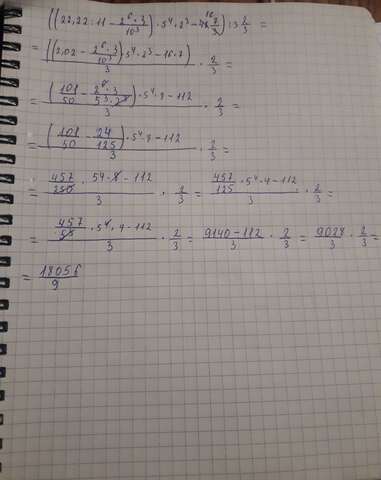 ((22,22:11 - 2⁶·3/10³)·5⁴·2³ - 16·7/3):3 2/3 =
= ((2,02 - 2⁶·3/10³)·5⁴·2³ - 16·7)/3 · 2/3 =
= (101/50 - 2⁶·3/5³·2³)·5⁴·8 - 112/3 · 2/3 =
= (101/50 - 24/125)·5⁴·8 - 112/3 · 2/3 =
= 457/250 · 5⁴·8 - 112/3 · 2/3 = 457/125 · 5⁴·4 - 112/3 · 2/3 =
= 457/5³ · 5⁴·4 - 112/3 · 2/3 = 9140-112/3 · 2/3 = 9028/3 · 2/3 =
= 18056/9